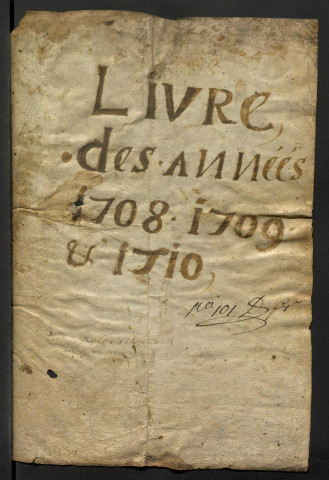 LIVRE,
·des·ANNéés
1708·1709
& 1710,
101